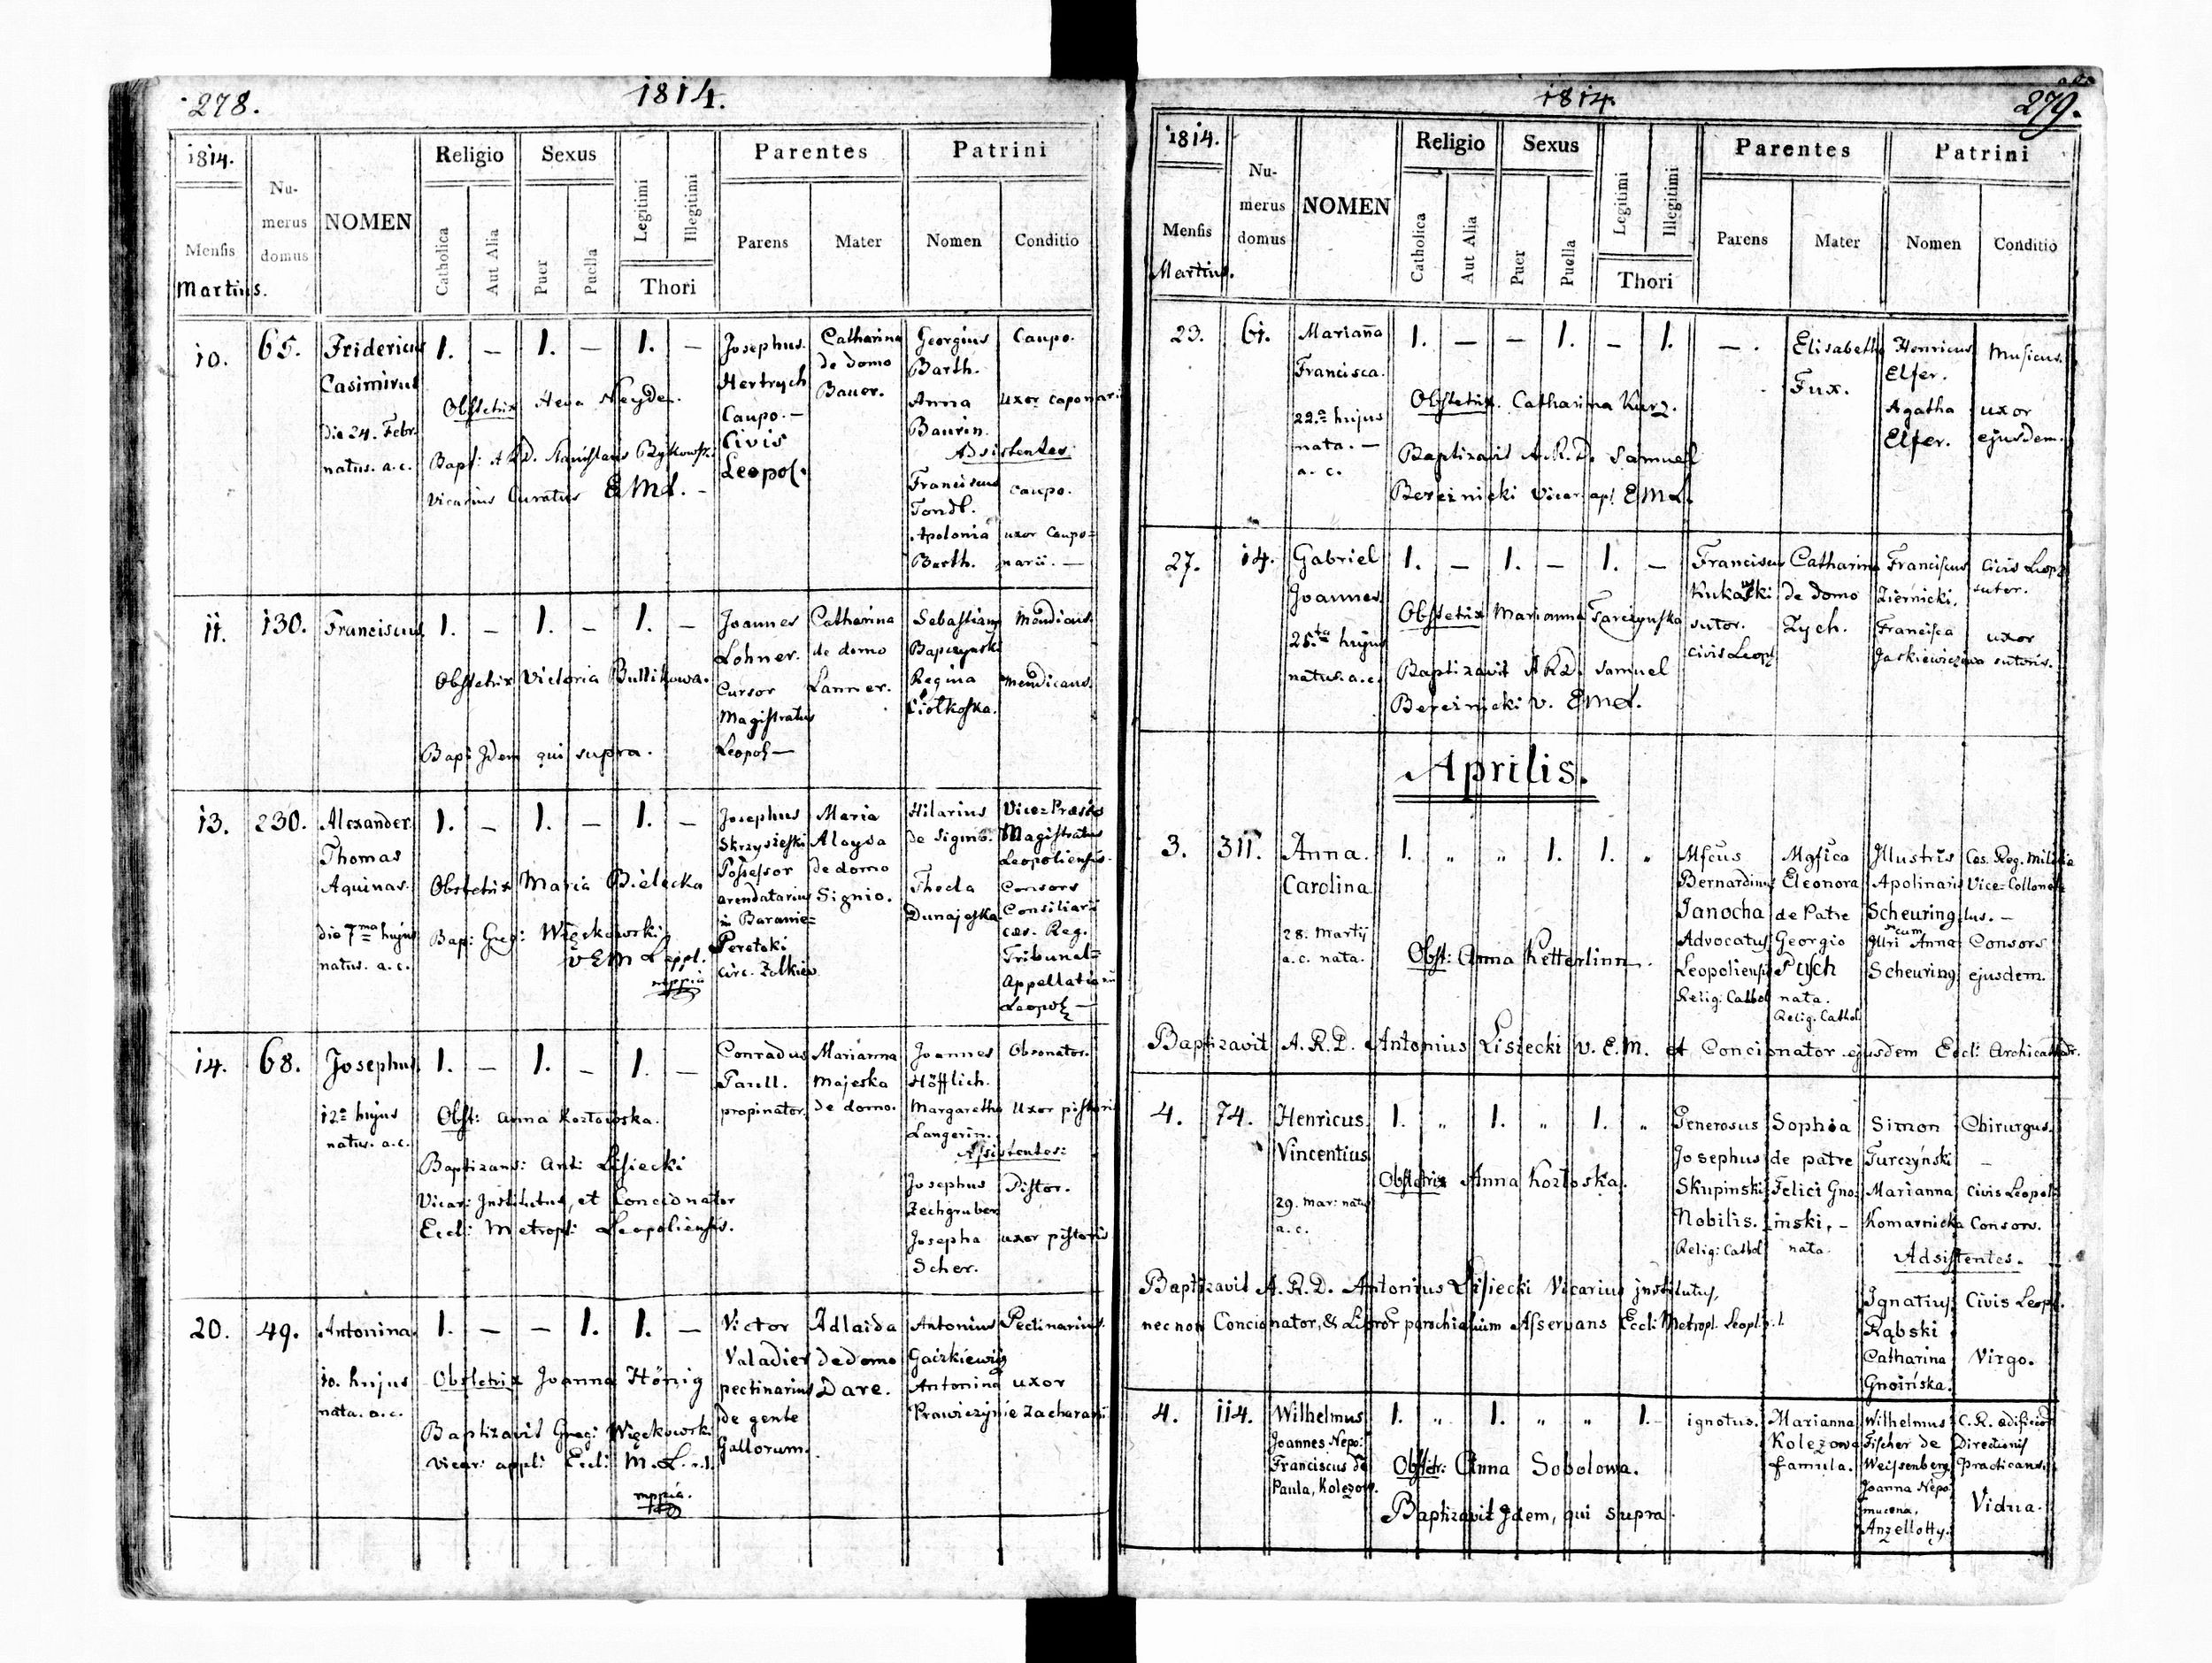 278.
1814.
1814.
Nu-
merus
domus
NOMEN
Religio
Sexus
Legitimi
Illegitimi
Parentes
Patrini
Mensis
Catholica
Aut Alia
Puer
Puella
Thori
Parens
Mater
Nomen
Conditio
Martius.
10.
65.
Fridericus
Casimirus
Die 24. Febr.
natus. a. c.
1. — 1. — 1. —
Obstetrix
Bapt: A R D. Stanislaus
Vicarius Curatus EML. —
Josephus
Hertrych
Caupo. —
Civis
Leopol.
Catharina
de domo
Bauer.
Georgius
Barth.
Anna
Baurin.
Adsistentes
Franciscus
Tondl.
Apolonia
Barth.
Caupo.
uxor caponarii
caupo.
uxor Caupo=
narii. —
11.
130.
Franciscus
1. — 1. — 1. —
Obstetrix Victoria Bullikowa.
Bap: Idem qui supra.
Joannes
Lohner.
Cursor
Magistratus
Leopol —
Catharina
de domo
Lanner.
Sebastianus
Bapczynski
Regina
Ciołkoska.
Mendicus.
Mendicans.
13.
230.
Alexander
Thomas
Aquinas.
die 7ma hujus
natus. a. c.
1. — 1. — 1. —
Obstetrix Maria Bielecka
Bap: Greg: Więckowski
v EM L appl.
mppia
Josephus
Skrzyszeski
Possessor
arendatarius
in Baranie=
Peretoki
circ. Zolkiev
Maria
Aloysa
de domo
Signio.
Hilarius
de Signio.
Thecla
Dunajeska
Vice=Praeses
Magistratus
Leopoliensis.
Consors
Consiliarii
caes. Reg.
Tribunal=
Appellatio
Leopol —
14.
68.
Josephus
12a hujus
natus. a. c.
1. — 1. — 1. —
Obst: Anna Kozłowska.
Baptizans: Ant: Lisiecki
Vicar: Institutus, et Concionator
Eccl: Metropl: Leopoliensis.
Conradus
Faull.
propinator.
Marianna
Majeska
de domo.
Joannes
Höfflich.
Margaretha
Langerin.
Assistentes:
Josephus
Zechgruber
Josepha
Scher.
Obsonator.
Uxor pistoris
Pistor.
uxor pistoris
20.
49.
Antonina
10. hujus
nata. a. c.
1. — — 1. 1. —
Obstetrix Joanna Hönig
Baptizavit Greg: Więckowski
vicar: appl: Eccl: M. L. r. l.
mppia.
Victor
Valadier
pectinarius
de gente
Gallorum.
Adlaida
de domo
Dare.
Antonius
Gaizkiewicz
Antonina
Pectinarius.
uxor
279.
1814.
1814.
Nu-
merus
domus
NOMEN
Religio
Sexus
Legitimi
Illegitimi
Parentes
Patrini
Mensis
Catholica
Aut Alia
Puer
Puella
Thori
Parens
Mater
Nomen
Conditio
Martius.
23.
61.
Mariana
Francisca.
22.a hujus
nata. —
a. c.
1. — — 1. — 1.
Obstetrix. Catharina Kurz.
Baptizavit A. R. D. Samuel
Bereinicki Vicar. apl EML.
— .
Elisabetha
Fux.
Henricus
Elfer.
Agatha
Elfer.
Musicus.
uxor
ejusdem.
27.
14.
Gabriel
Joannes.
25.ta hujus
natus. a. c.
1. — 1. — 1. —
Obstetrix Marianna Tarczynska
Baptizavit A R D. Samuel
Bereinicki v. EML.
Franciscus
sutor.
Civis Leopl
Catharina
de domo
Zych.
Franciscus
Ziernicki.
Francisca
Jaskiewiczowa
Civis Leopl
sutor.
uxor
sutoris.
Aprilis.
3.
311.
Anna.
Carolina
28. Martii
a. c. nata.
1. „ „ 1. 1. „
Obst: Anna Ketterlinn.
Mfcus
Bernardinus
Janocha
Advocatus
Leopoliensis
Relig: Cathol
Mgfica
Eleonora
de Patre
Georgio
nata.
Relig. Cathol.
Illustris
Apolinaris
Scheuring
cum
Illri Anna
Scheuring
Cas. Reg. Militiae
Vice=Collonel=
lus. —
Consors
ejusdem.
Baptizavit A. R. D. Antonius Lisiecki v. E. M. et Concionator ejusdem Eccl: Archicathedr.
4.
74.
Henricus
Vincentius
29. mar: natus
a. c.
1. „ 1. „ 1. „
Obstetrix Anna Kozłoska.
Generosus
Josephus
Skupinski
Nobilis.
Relig: Cathol
Sophia
de patre
Felici Gno=
inski, —
nata.
Simon
Turczyński
Marianna
Komarnicka
Adsistentes.
Ignatius
Rąbski
Catharina
Gnoińska.
Chirurgus.
—
Civis Leopol:
Consors.
Civis Leopl.
Virgo.
Baptizavit A. R. D. Antonius Lisiecki Vicarius institutus,
nec non Concionator, & Libror parochialium Asservans Eccl: Metropl. Leopl r. l.
4.
114.
Wilhelmus
Joannes Nepo:
Franciscus de
Paula, Kolęzow.
1. „ 1. „ „ 1.
Obstetr: Anna Sobolowa.
Baptizavit Idem, qui supra.
ignotus.
Marianna
Kolęzowa
famula.
Wilhelmus
Fischer de
Weissenberg
Joanna Nepo
mucena,
Anzellotty.
C. R. ædificior
Directionis
Practicans.
Vidua.